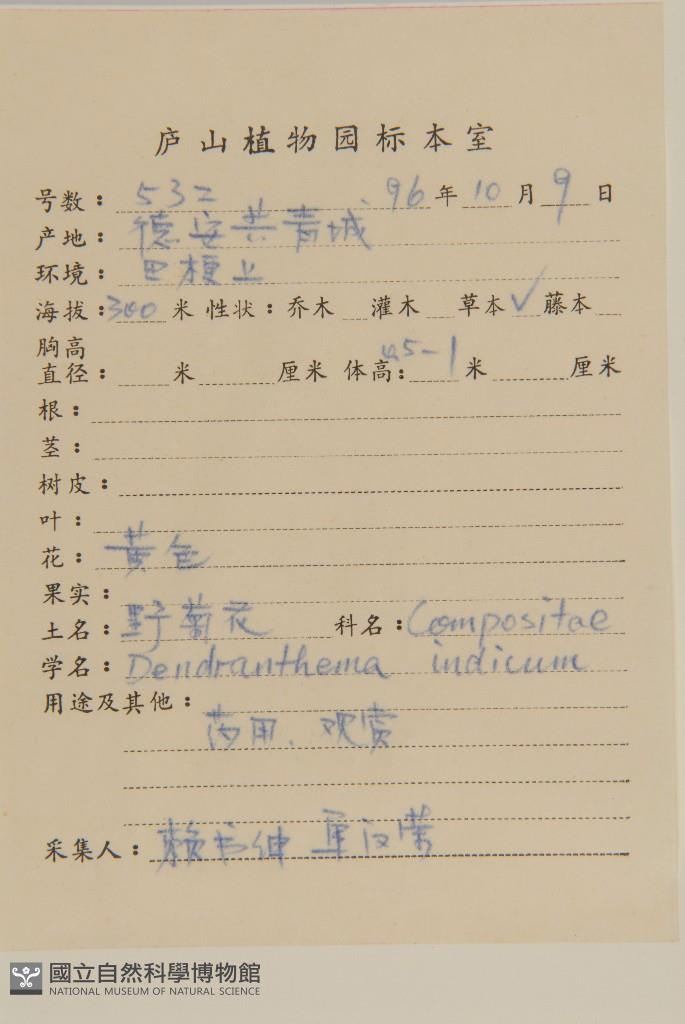 庐山植物园标本室
号数: 532 96年10月9日
产地: 德安共青城
环境: 田梗上
海拔: 300米 性状: 乔木 灌木 草本✓ 藤本
胸高
直径: 米 厘米 体高: 0.5-1米 厘米
根:
茎:
树皮:
叶:
花: 黄色
果实:
土名: 野菊花 科名: Compositae
学名: Dendranthema indicum
用途及其他:
药用、观赏
采集人: 赖书绅 单汉荣
國立自然科學博物館
NATIONAL MUSEUM OF NATURAL SCIENCE